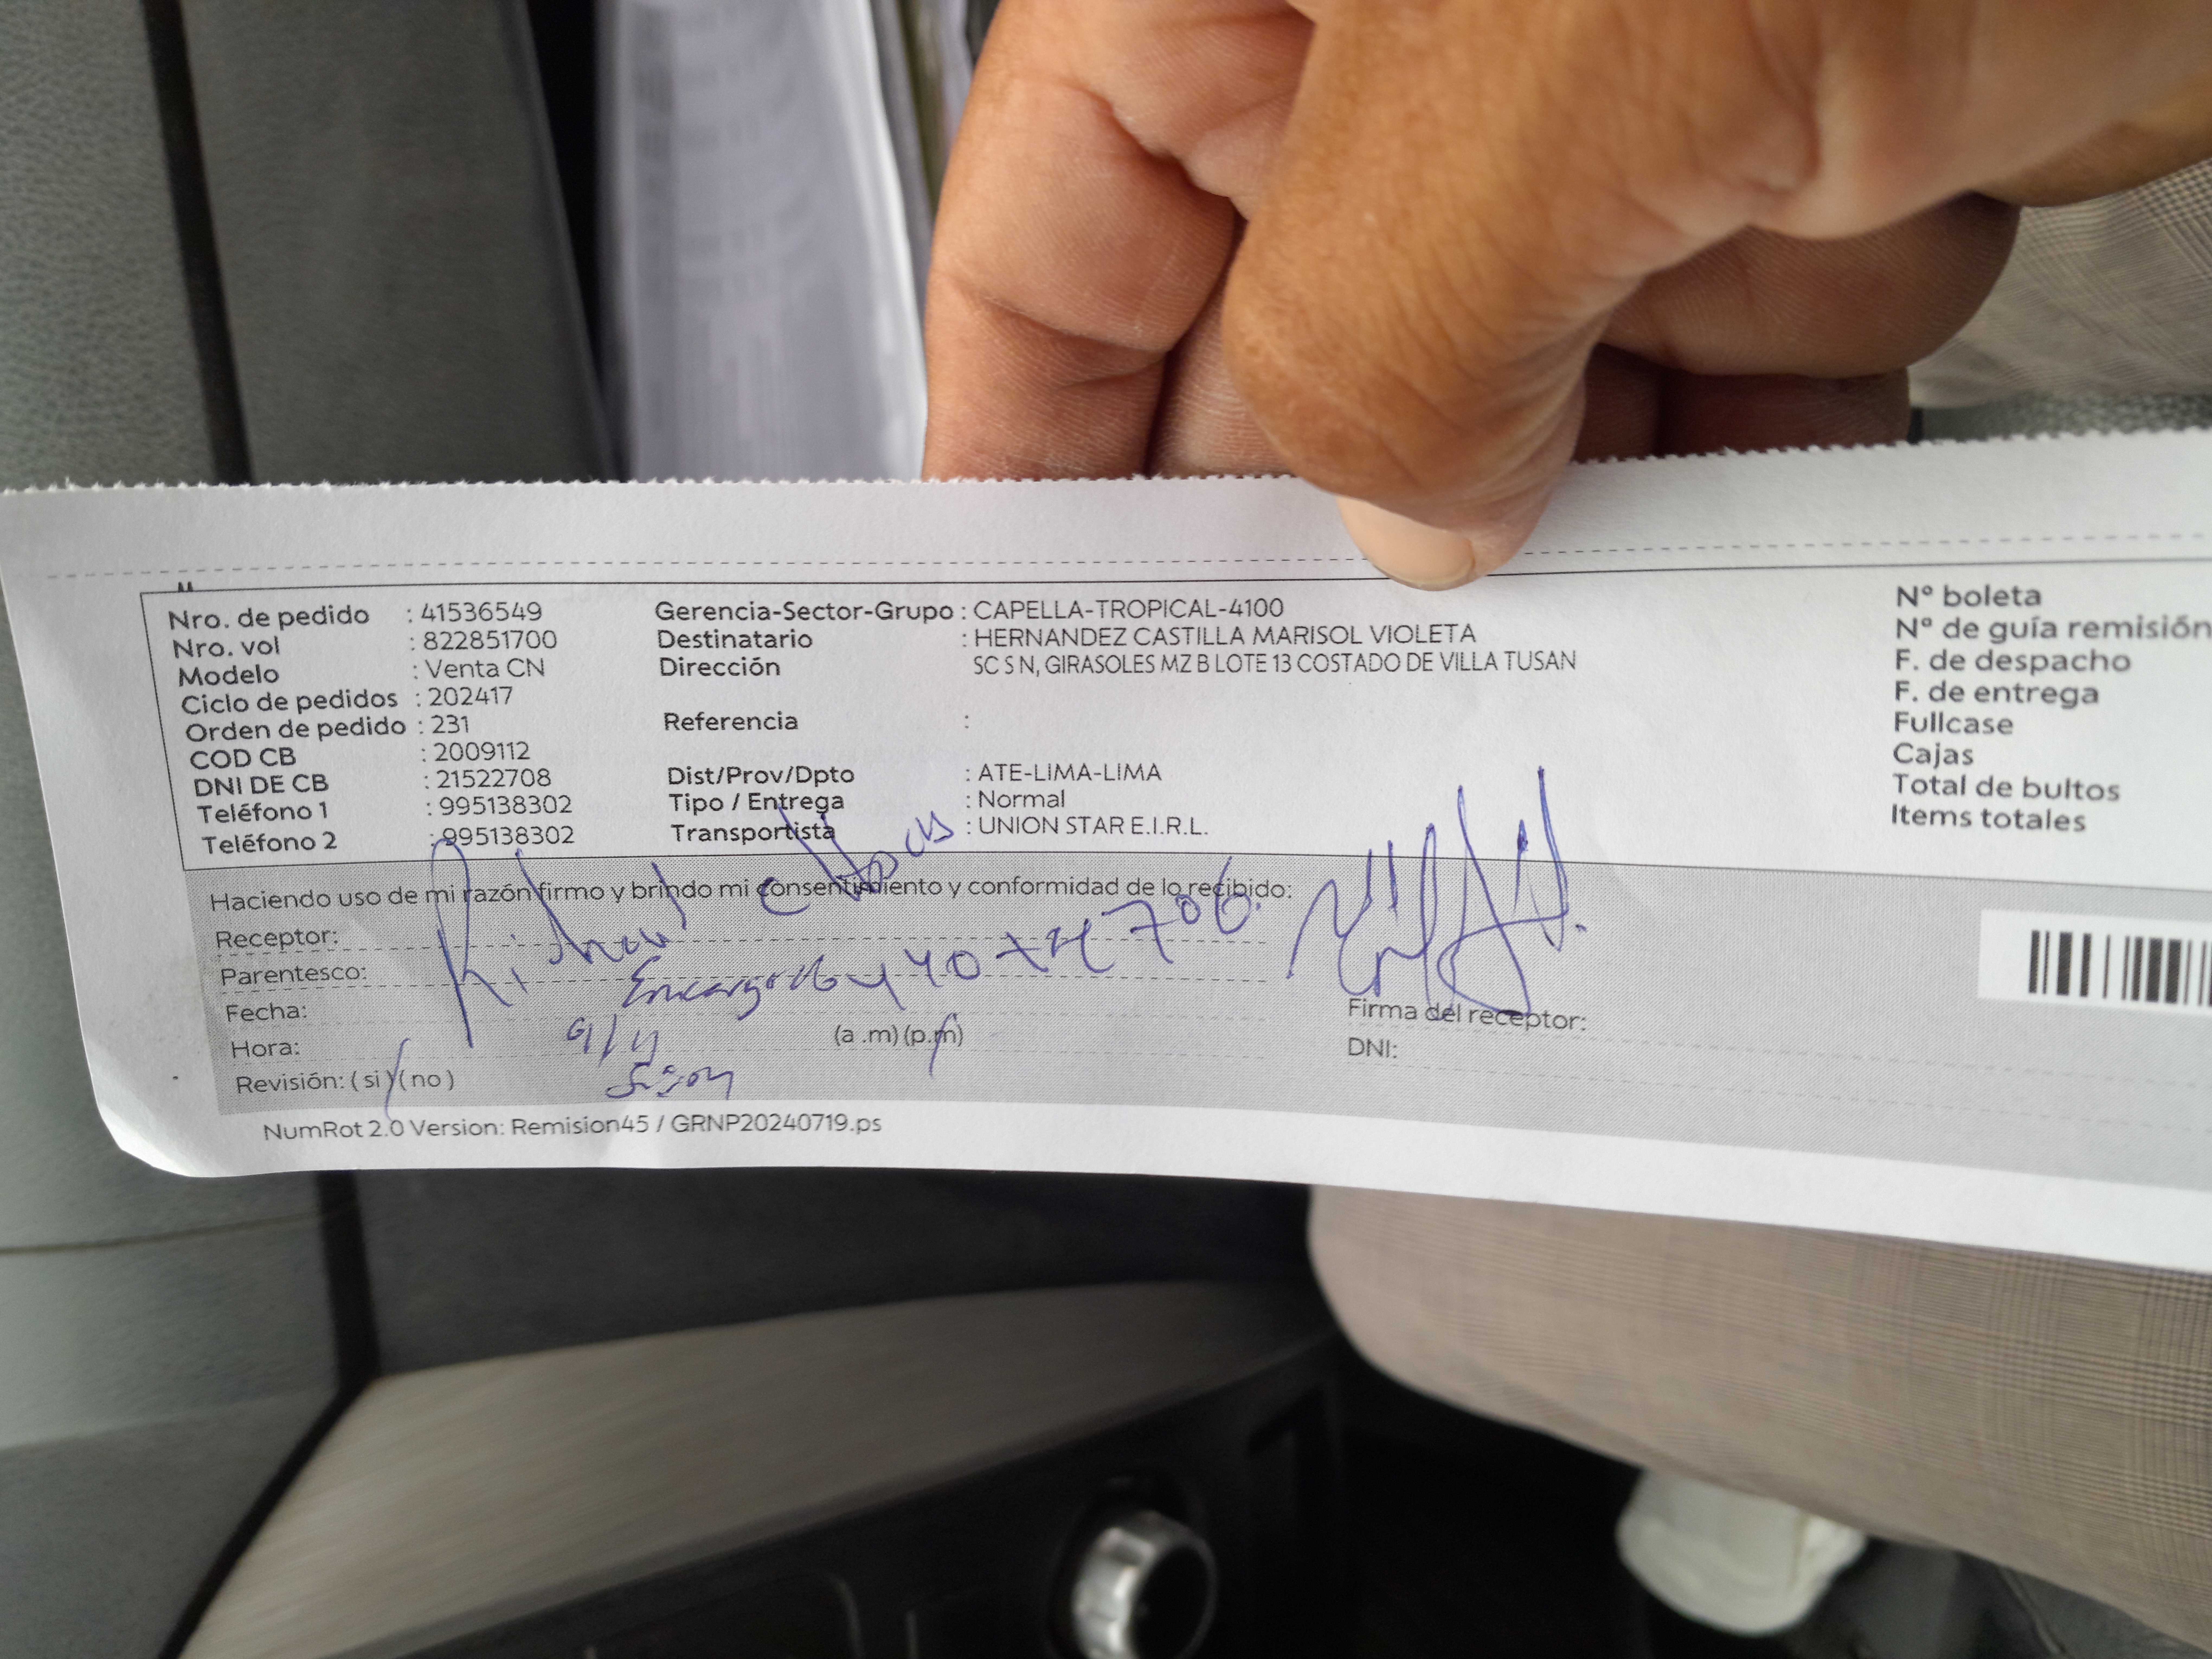 Nro. de pedido : 41536549 Gerencia-Sector-Grupo : CAPELLA-TROPICAL-4100 Nº boleta
Nro. vol : 822851700 Destinatario : HERNANDEZ CASTILLA MARISOL VIOLETA Nº de guía remisión
Modelo : Venta CN Dirección SC S N, GIRASOLES MZ B LOTE 13 COSTADO DE VILLA TUSAN F. de despacho
Ciclo de pedidos : 202417 F. de entrega
Orden de pedido : 231 Referencia : Fullcase
COD CB : 2009112 Cajas
DNI DE CB : 21522708 Dist/Prov/Dpto : ATE-LIMA-LIMA Total de bultos
Teléfono 1 : 995138302 Tipo / Entrega : Normal Items totales
Teléfono 2 : 995138302 Transportista : UNION STAR E.I.R.L.
Haciendo uso de mi razón firmo y brindo mi consentimiento y conformidad de lo recibido:
Receptor:
Parentesco: Encargado
Fecha: Firma del receptor:
Hora: (a .m) (p.m) DNI:
Revisión: ( si ) ( no )
NumRot 2.0 Version: Remision45 / GRNP20240719.ps